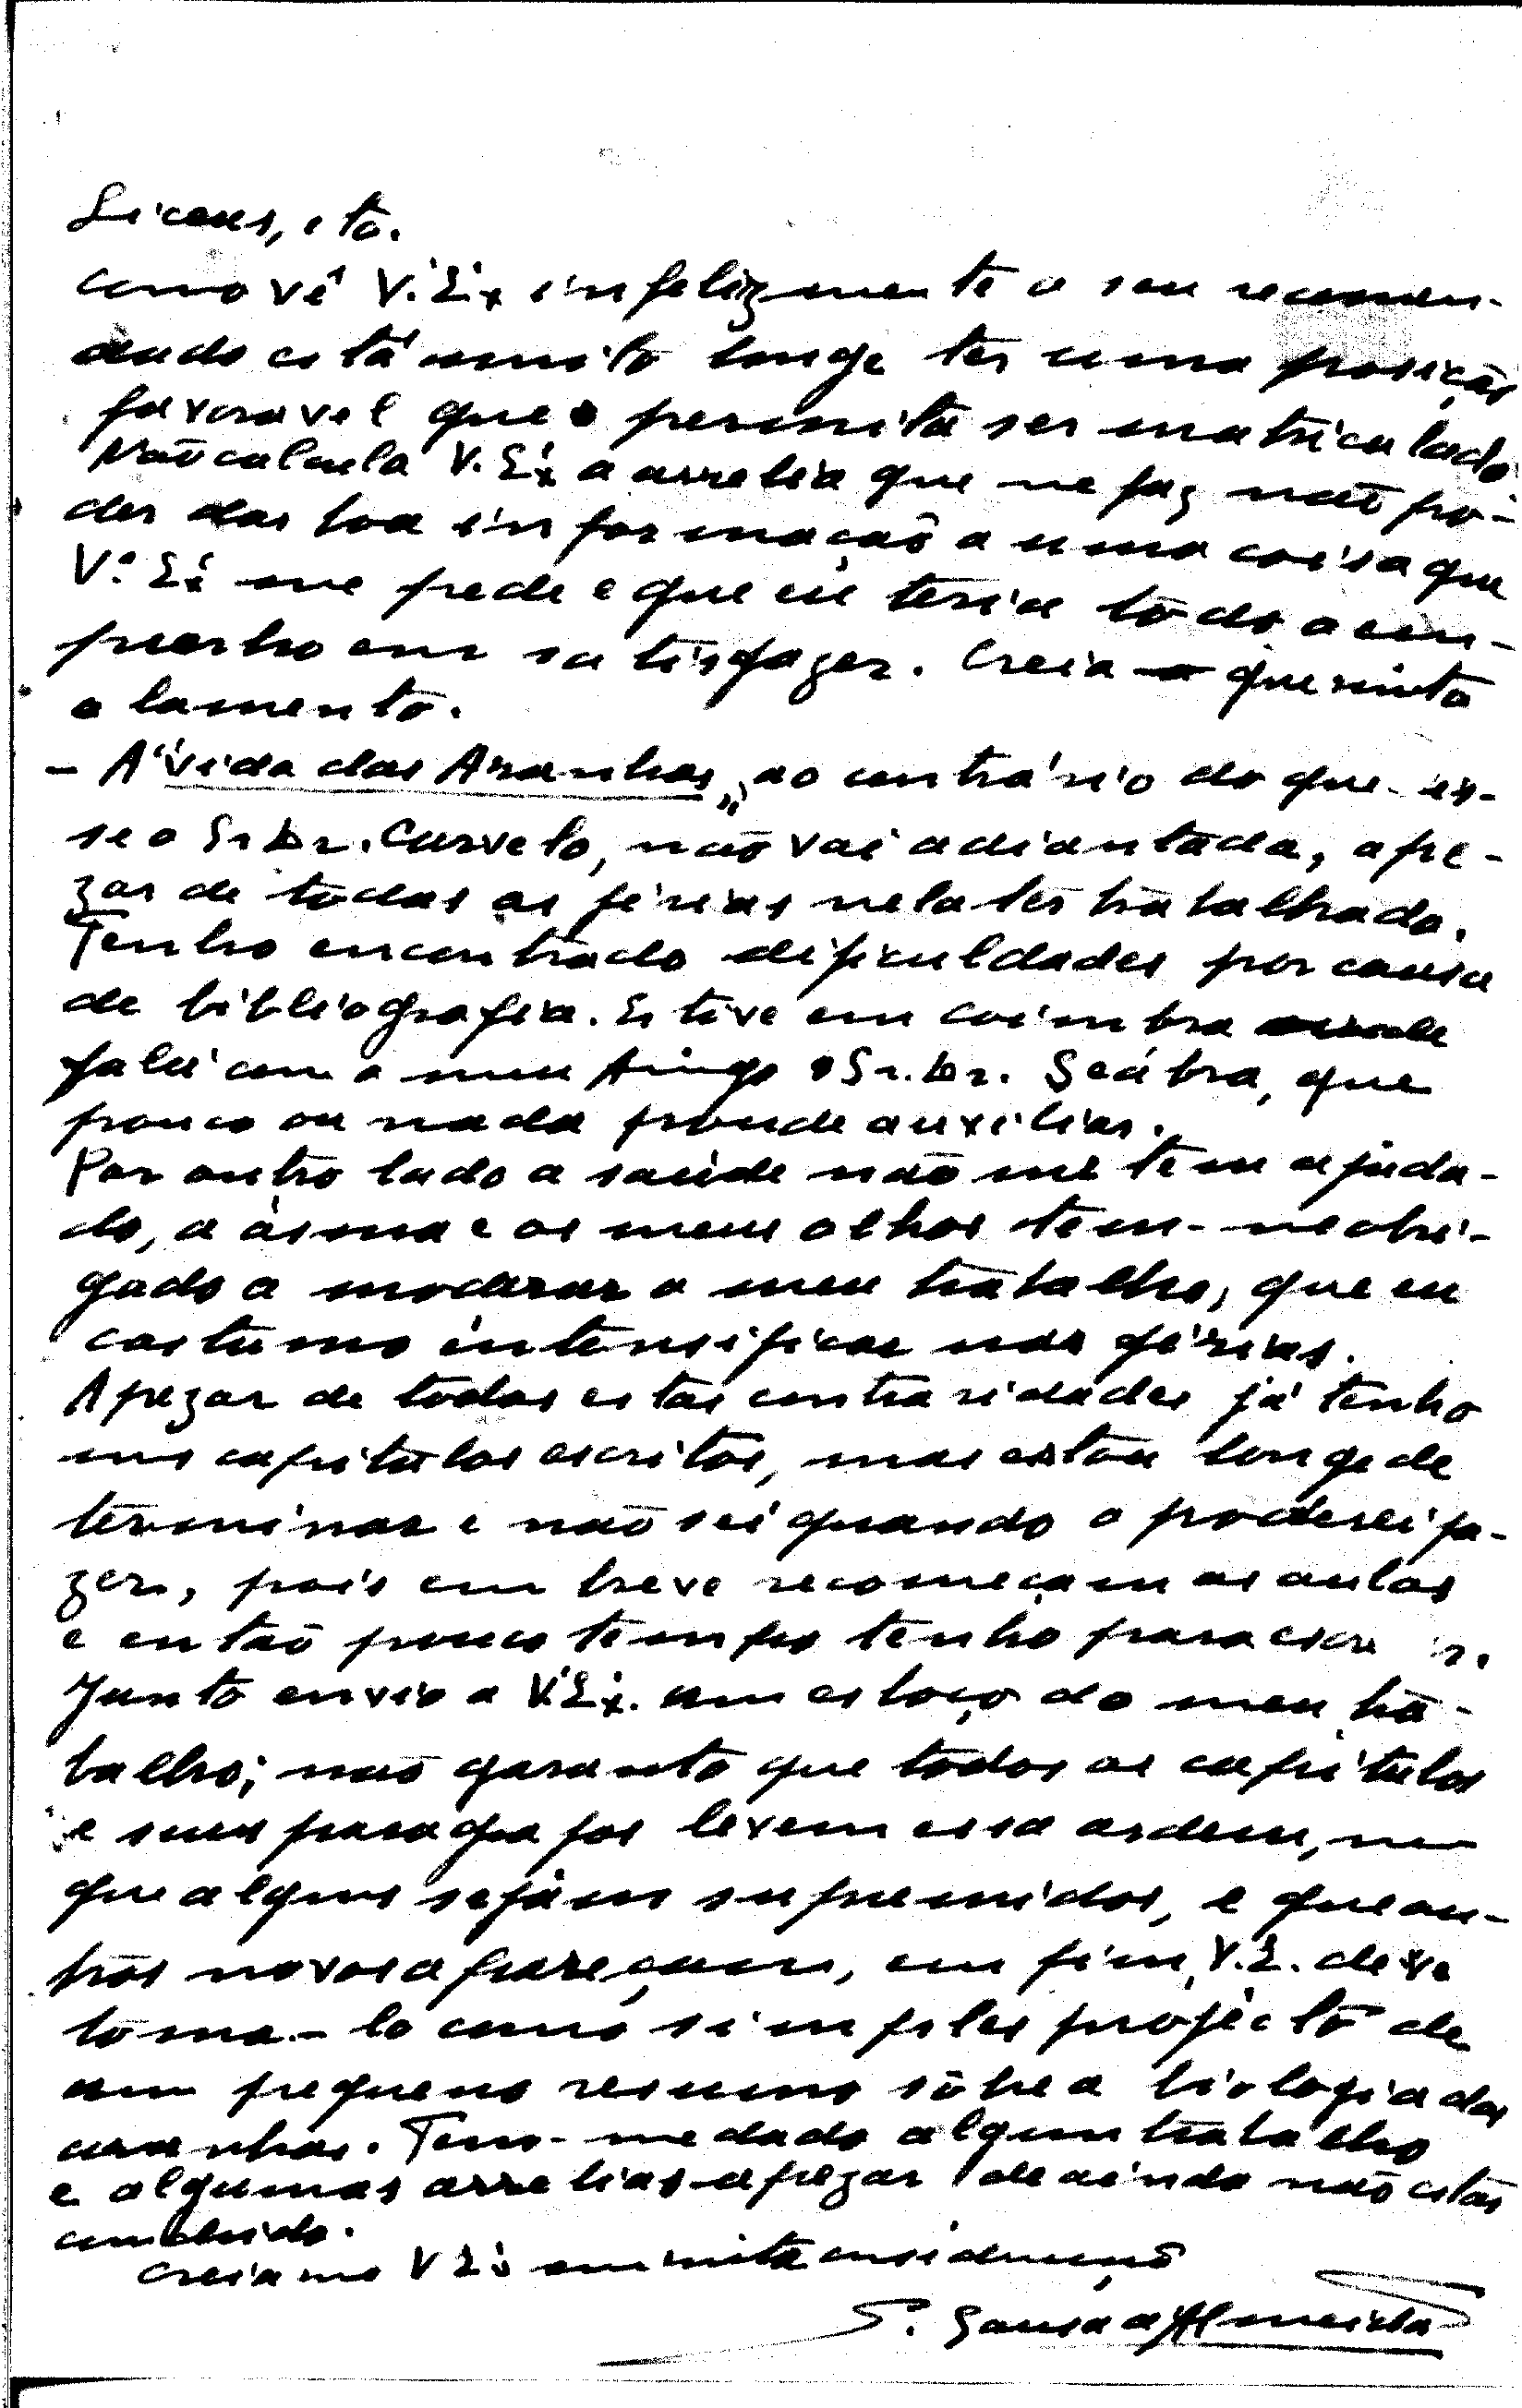 Liceus, etc.
como vê V. Ex. infelizmente o seu recomen-
dado está muito longe ter uma posição
favoravel que permita ser matriculado
Não calcula V. Ex. a arrelia que me faz não po-
der dar boa informação a uma coisa que
V. Ex. me pede e que eu teria todo o em-
penho em satisfazer. Creia que muito
o lamento.
— A "vida das Aranhas", ao contrário do que dis-
se o Sr. Dr. Carvelo, não vai adiantada, ape-
zar de todas as férias nela ter trabalhado.
Tenho encontrado dificuldades por causa
de bibliografia. Estive em Coimbra
falei com o meu Amigo o Sr. Dr. Seábra, que
pouco ou nada poude auxiliar.
Por outro lado a saúde não me tem ajuda-
do, a ásma e os meus olhos tem-me obri-
gado a moderar o meu trabalho, que eu
costumo intensificar nas férias.
Apezar de todas estas contrariedades já tenho
uns capitulos escritos, mas estou longe de
terminar e não sei quando o poderei fa-
zer, pois em breve recomeçam as aulas
e então pouco tempo tenho para escrever.
Junto envio a V. Ex. um esboço do meu tra-
balho; não garanto que todos os capitulos
e seus paragrafos levem essa ordem, nem
que alguns sejam supremidos, e que ou-
tros novos apareçam, em fim, V. E. deve
toma-lo como simples projécto de
um pequeno resumo sôbre a biologia das
aranhas. Tem-me dado algum trabalho
e algumas arrelias apezar de ainda não estar
concluido.
Creia-me V. Ex. com muita consideração
S. Sousa d'Almeida